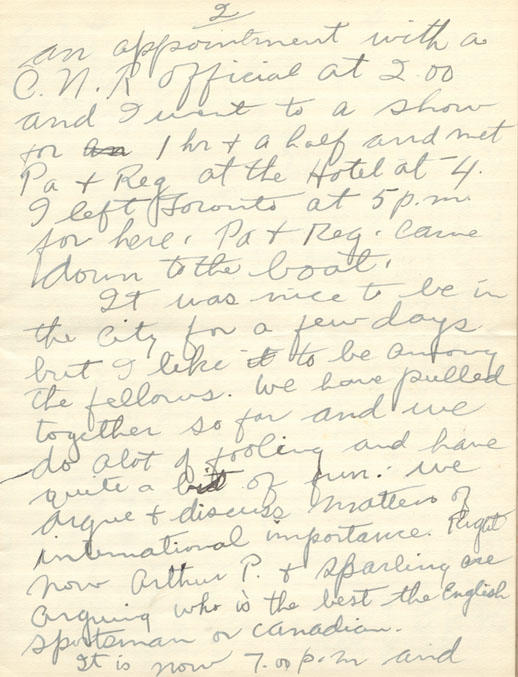 2
an appointment with a
C.N.R official at 2.00
and I went to a show
for an 1 hr + a half and met
Pa + Reg at the Hotel at 4.
I left Toronto at 5 p.m.
for here. Pa + Reg. came
down to the boat.
It was nice to be in
the city for a few days
but I like it to be among
the fellows. We have pulled
together so far and we
do alot of fooling and have
quite a bit of fun. We
argue + discuss matters of
international importance. Right
now Arthur P. + Sparling are
arguing who is the best the English
sportsman or Canadian.
It is now 7.00 p.m and